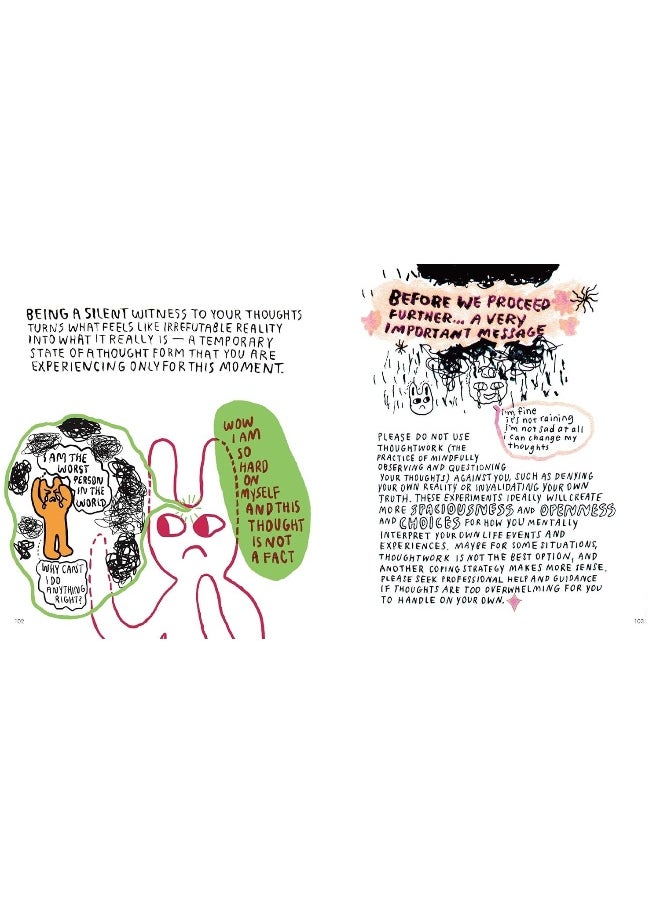 BEING A SILENT WITNESS TO YOUR THOUGHTS
TURNS WHAT FEELS LIKE IRREFUTABLE REALITY
INTO WHAT IT REALLY IS — A TEMPORARY
STATE OF A THOUGHT FORM THAT YOU ARE
EXPERIENCING ONLY FOR THIS MOMENT.
I AM THE
WORST
PERSON
IN THE
WORLD
WHY CAN'T
I DO
ANYTHING
RIGHT?
WOW
I AM
SO
HARD
ON
MYSELF
AND THIS
THOUGHT
IS NOT
A FACT
102
BEFORE WE PROCEED
FURTHER... A VERY
IMPORTANT MESSAGE
I'm fine
it's not raining
I'm not sad at all
i can change my
thoughts
PLEASE DO NOT USE
THOUGHTWORK (THE
PRACTICE OF MINDFULLY
OBSERVING AND QUESTIONING
YOUR THOUGHTS) AGAINST YOU, SUCH AS DENYING
YOUR OWN REALITY OR INVALIDATING YOUR OWN
TRUTH. THESE EXPERIMENTS IDEALLY WILL CREATE
MORE SPACIOUSNESS AND OPENNESS
AND CHOICES FOR HOW YOU MENTALLY
INTERPRET YOUR OWN LIFE EVENTS AND
EXPERIENCES. MAYBE FOR SOME SITUATIONS,
THOUGHTWORK IS NOT THE BEST OPTION, AND
ANOTHER COPING STRATEGY MAKES MORE SENSE.
PLEASE SEEK PROFESSIONAL HELP AND GUIDANCE
IF THOUGHTS ARE TOO OVERWHELMING FOR YOU
TO HANDLE ON YOUR OWN.
103